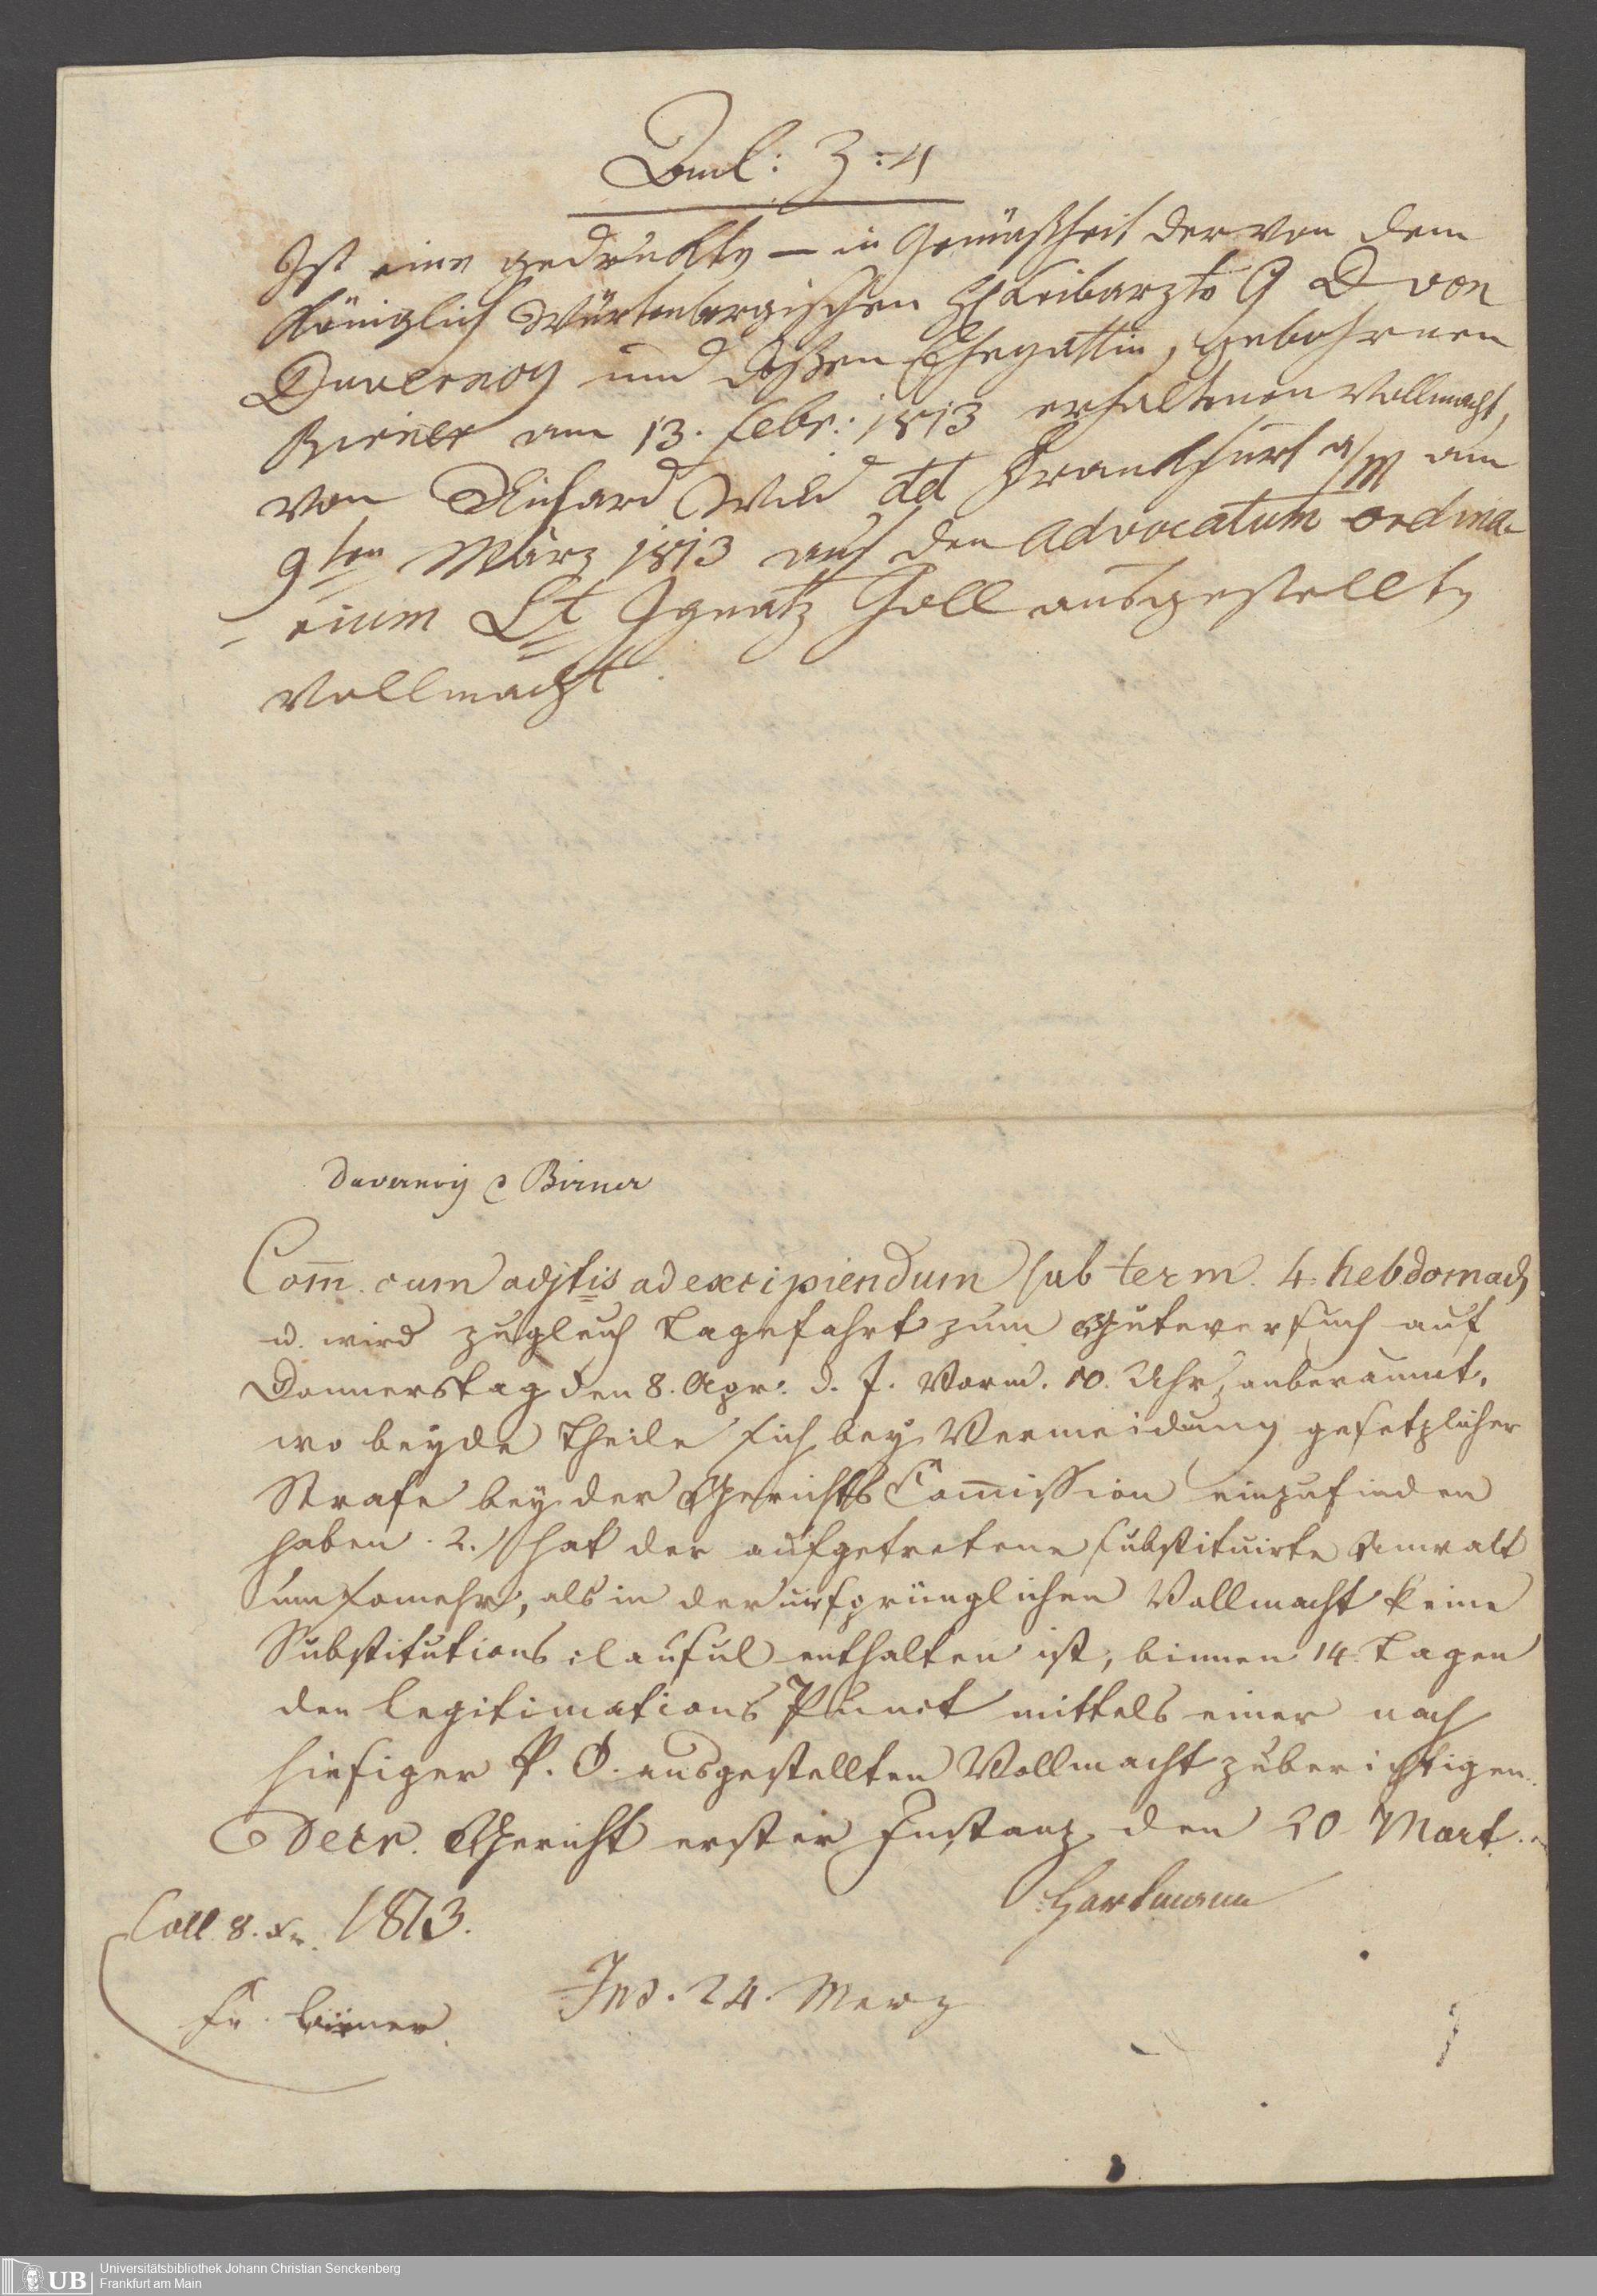 Anl: Z: 4
Ist eine gedrukte — in Gemäßheit der von dem
Königlich Würtenbergischen H Leibarzte G D von
Duvernoy und deßen Ehegattin, gebohrnen
Birner am 13. Febr: 1813 erhaltenen Vollmacht,
von Richard Wild dd Frankfurt a/M am
9ten März 1813 auf den advocatum ordina-
-rium Lt Ignatz Goll ausgestellte
Vollmacht.
Duvernoy c Birner
Com̄. cum adjtis ad excipiendum sub term. 4. hebdomad
u. wird zugleich Tagefahrt zum Güteversuch auf
Donnerstag den 8. Apr. d. J. Vorm. 10. Uhr anberaumt,
wo beyde Theile sich bey Vermeidung gesetzlicher
Strafe bey der Gerichts Com̄ission einzufinden
haben. 2. hat der aufgetretene substituirte Anwalt
um somehr, als in der ursprünglichen Vollmacht keine
Substitutions clausul enthalten ist, binnen 14. Tagen
den Legitimations Punct mittels einer nach
hiesiger P. O. ausgestellten Vollmacht zu berichtigen.
Decr. Gericht erster Instanz den 20 Mart.
1813.
Hartmann
Coll. 8. xr.
Fr. Birner
Ins. 24. Merz
Universitätsbibliothek Johann Christian Senckenberg
UB Frankfurt am Main